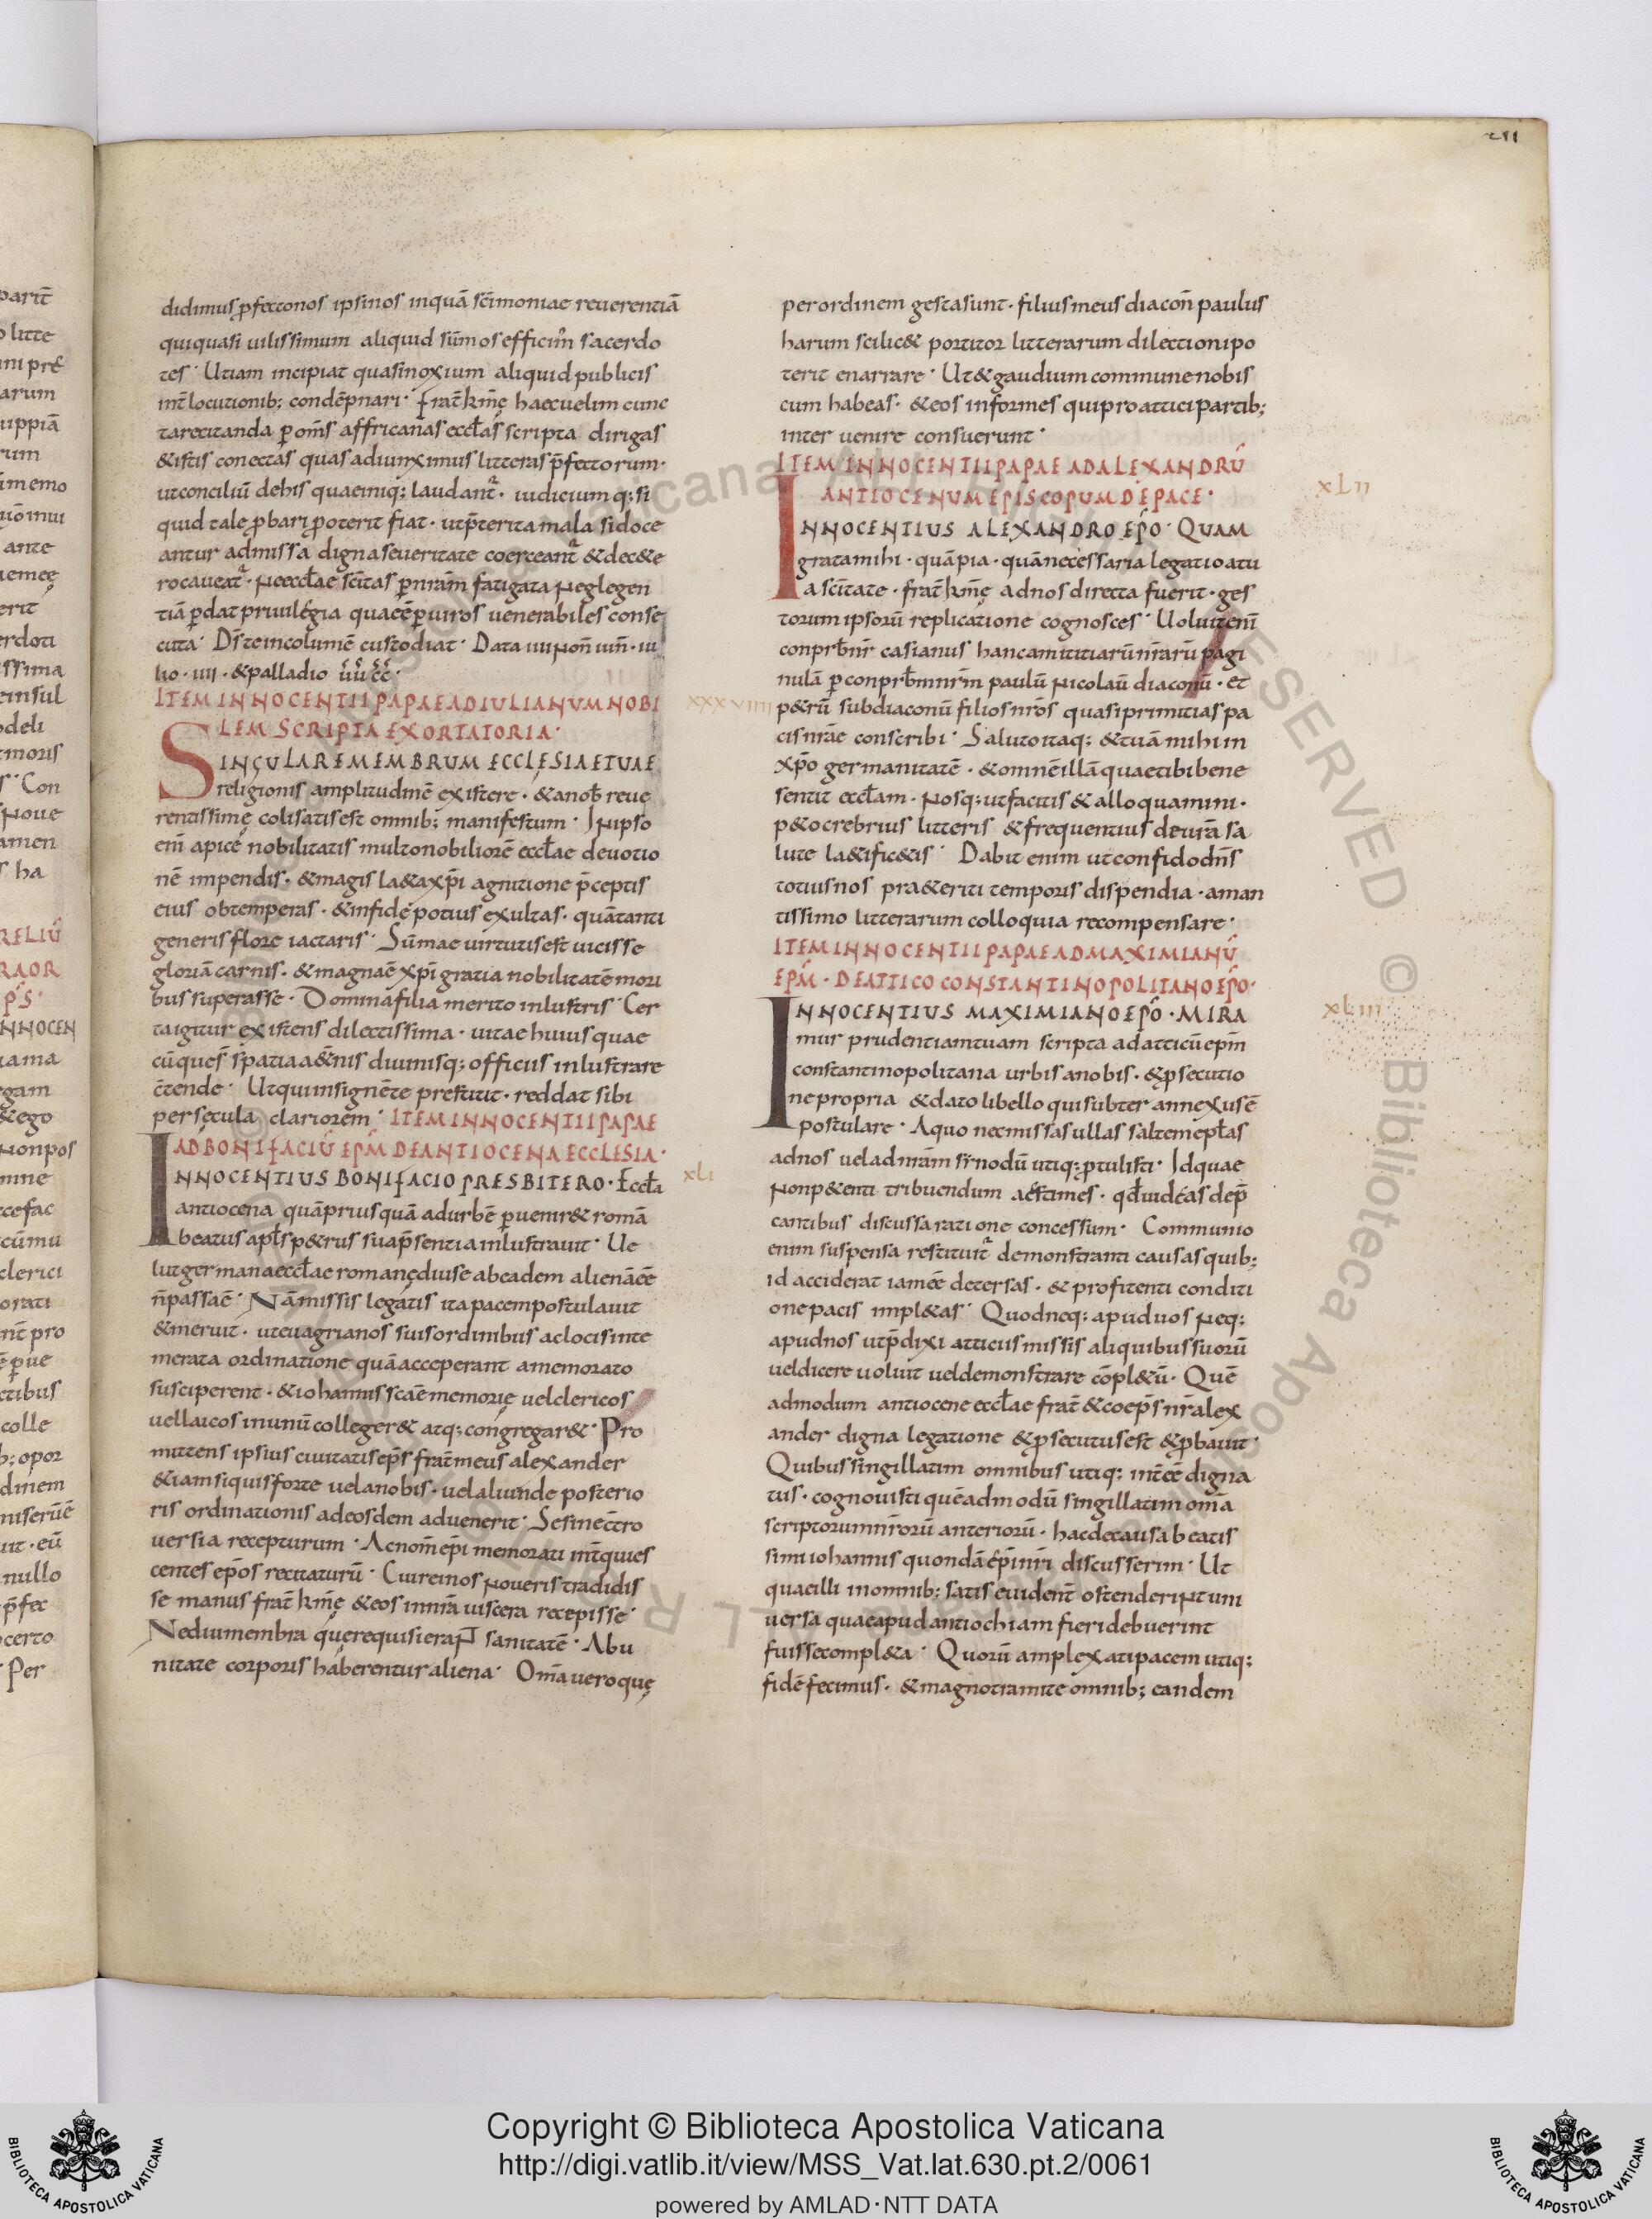 didimus p̄fectonos ipsinos inquā sc̄imoniae reuerentiā
quiquasi uilissimum aliquid sūmos efficim̄ sacerdo
tes· Utiam incipiat quasinoxium aliquid publicis
int̄ locutionib; condēpnari· frat̄ km̄ę haecuelim cunc
tarecitanda ꝑ om̄s affricanas eccƚas scripta dirigas
&istis conectas quas adiunximus litteras p̄fectorum·
utconciliū dehis quaeiniq; laudant᷑· iudiciumq; si
quid tale ꝓbari ꝓoterit fiat· utp̄terita mala sidoce
antur admissa digna seueritate coerceant᷑ &dec&e
rocaueat᷑· Neeccƚae sc̄itas ꝑnr̄am fatigata Neglegen
tiā ꝑdat priuilegia quaeē ꝑuiros uenerabiles conse
cuta· Dſ̄ teincolumē custodiat· Data iiii Noñ iuñ· iu
lio· iiii· &palladio ūū c̄c̄·
ITEM INNOCENTII PAPAE AD IULIANUM NOBI
LEM SCRIPTA EXORTATORIA·
SINGULARE MEMBRUM ECCLESIAE TUAE
religionis amplitudinē existere· &anob̄ reue
rentissimę colisatisest omnib; manifestum· INipso
em̄ apicē nobilitatis multonobiliorē eccƚae deuotio
nē impendis· &magis la&axp̄i agnitione p̄ceptis
eius obtemperas· &infidē potius exultas· quātanti
generis flore iactaris· Sūmae uirtutisest uicisse
gloriā carnis· &magnaē xp̄i gratia nobilitatē mori
bus superasse· Dominafilia merito inlustris· Cer
taigitur existens dilectissima· uitae huius quae
cūques̄ spatia a&n̄is diuinisq; officiis inlustrare
c̄tende· Utquiinsignēte prestitit· reddat sibi
persecula clariorem· ITEM INNOCENTII PAPAE
AD BONIFACIŪ EPM̄ DE ANTIOCENA ECCLESIA·
xLi
INNOCENTIUS BONIFACIO PRESBITERO· Eccƚa
antiocena quāpriusquā adurbē ꝑuenir& romā
beatus apƚs p&rus suap̄sentia inlustrauit· Ue
lutgermanaeccƚae romanę diuise abeadem alienāēē
n̄passaē· Nāmissis legatis ita pacempostulauit
&meruit· uteuagrianos suisordinibus aclocisinte
merata ordinatione quāacceperant amemorato
susciperent· &iohannis scāēmemorię uelclericos
uellaicos inunū colleger& atq; congregar&· Pro
mittens ipsius ciuitatisep̄s frat̄meus alexander
&iamsiquisforte uelanobis· uelaliunde posterio
ris ordinationis adeosdem aduenerit· Sesinec̄tro
uersia recepturum· Acnom̄ ep̄i memorati int̄quies
centes ep̄os recitaturū· Cuiremos Noueris tradidis
se manus frat̄ km̄ę &eos innr̄a uiscera recepisse·
Nediumembra quęrequisieraNT sanitatē· Abu
nitate corporis haberenturaliena· Om̄auero quę
perordinem gestasunt· filiusmeus diacon̄ paulus
harum scilic& portitor litterarum dilectionipo
terit enarrare· Ut&gaudium commune nobis
cum habeas· &eos informes quiproatticipartib;
inter uenire consuerunt·
ITEM INNOCENTII PAPAE AD ALEXANDRŪ
ANTIOCENUM EPISCOPUM DE PACE·
xLii
INNOCENTIUS ALEXANDRO EPŌ· QUAM
gratamihi· quāpia· quānecessaria legatioatu
a sc̄itate· frat̄ km̄ę adnos directa fuerit· ges
torum ipsorū replicatione cognosces· Uoluitenī
conprb̄nr̄ casianus hancamititiarū nr̄arū pagi
nulā ꝑ conprb̄mnr̄m paulū Nicolaū diaconū· et
p&rū subdiaconū filiosnr̄os quasiprimitiaspa
cisnr̄ae conscribi· Salutoitaq; &tuā mihiin
xp̄o germanitatē· &omnēillā quaetibibene
sentit eccƚam· Nosq; utfacitis &alloquamini·
p&ocrebrius litteris &frequentius deur̄a sa
lute la&ific&is· Dabit enim utconfidodn̄s
totiusnos pra&eriti temporis dispendia· aman
tissimo litterarum colloquia recompensare·
ITEM INNOCENTII PAPAE AD MAXIMIANŪ
EPM̄· DE ATTICO CONSTANTINOPOLITANO EPŌ·
xLiii
INNOCENTIUS MAXIMIANO EPŌ· MIRA
mur prudentiamtuam scripta adatticū ep̄m
constantinopolitana urbis anobis· &ꝓsecutio
nepropria &dato libello quisubter annexusē
postulare· Aquo necmissas ullas saltemepƚas
adnos ueladnr̄am sinodū utiq; ꝑtulisti· Idquae
Nonp&enti tribuendum aestimes· qđ uideas dep̄
cantibus discussa ratione concessum· Communio
enim suspensa restituit᷑ demonstranti causas quib;
id acciderat iamēē detersas· &profitenti conditi
onepacis impl&as· Quodneq; apuduos Neq;
apudnos utp̄dixi atticus missis aliquibus suorū
ueldicere uoluit ueldemonstrare cōpl&ū· Quē
admodum antiocene eccƚae frat̄ &coep̄s nr̄alex
ander digna legatione &ꝓsecutusest &ꝓbauit·
Quibussingillatim omnibus utiq; int̄ēē digna
tus· cognouisti quēadmodū singillatim om̄a
scriptorumnr̄orū anteriorū· hacdecausa beatis
simi iohannis quondā ep̄inr̄i discusserim· Ut
quaeilli inomnib; satis euident̄ ostenderiNt uni
uersa quaeapud antiochiam fieri debuerint
fuissecompl&a· Quorū amplexatipacem utiq;
fidēfecimus· &magnotramite omnib; eandem
Copyright © Biblioteca Apostolica Vaticana
http://digi.vatlib.it/view/MSS_Vat.lat.630.pt.2/0061
powered by AMLAD·NTT DATA
BIBLIOTECA APOSTOLICA VATICANA
BIBLIOTECA APOSTOLICA VATICANA